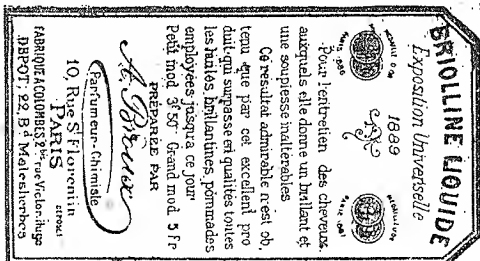 BRIOLLINE LIQUIDE
Exposition Universelle
1889
MEDAILLE D'OR
PARIS
MEDAILLE D'OR
PARIS
Pour l'entretien des cheveux
auxquels elle donne un brillant et
une souplesse inaltérables
Ce résultat admirable n'est ob
tenu que par cet excellent pro
duit qui surpasse en qualités toutes
les huiles, brillantines, pommades
employées jusqu'à ce jour
Petit mod 3f 50 Grand mod 5 fr
PRÉPARÉE PAR
Parfumeur-Chimiste
10, Rue St Florentin
PARIS
DÉPOSÉ
FABRIQUE A COLOMBES, 2bis, rue Victor Hugo
DEPOT: 22, Bd Malesherbes